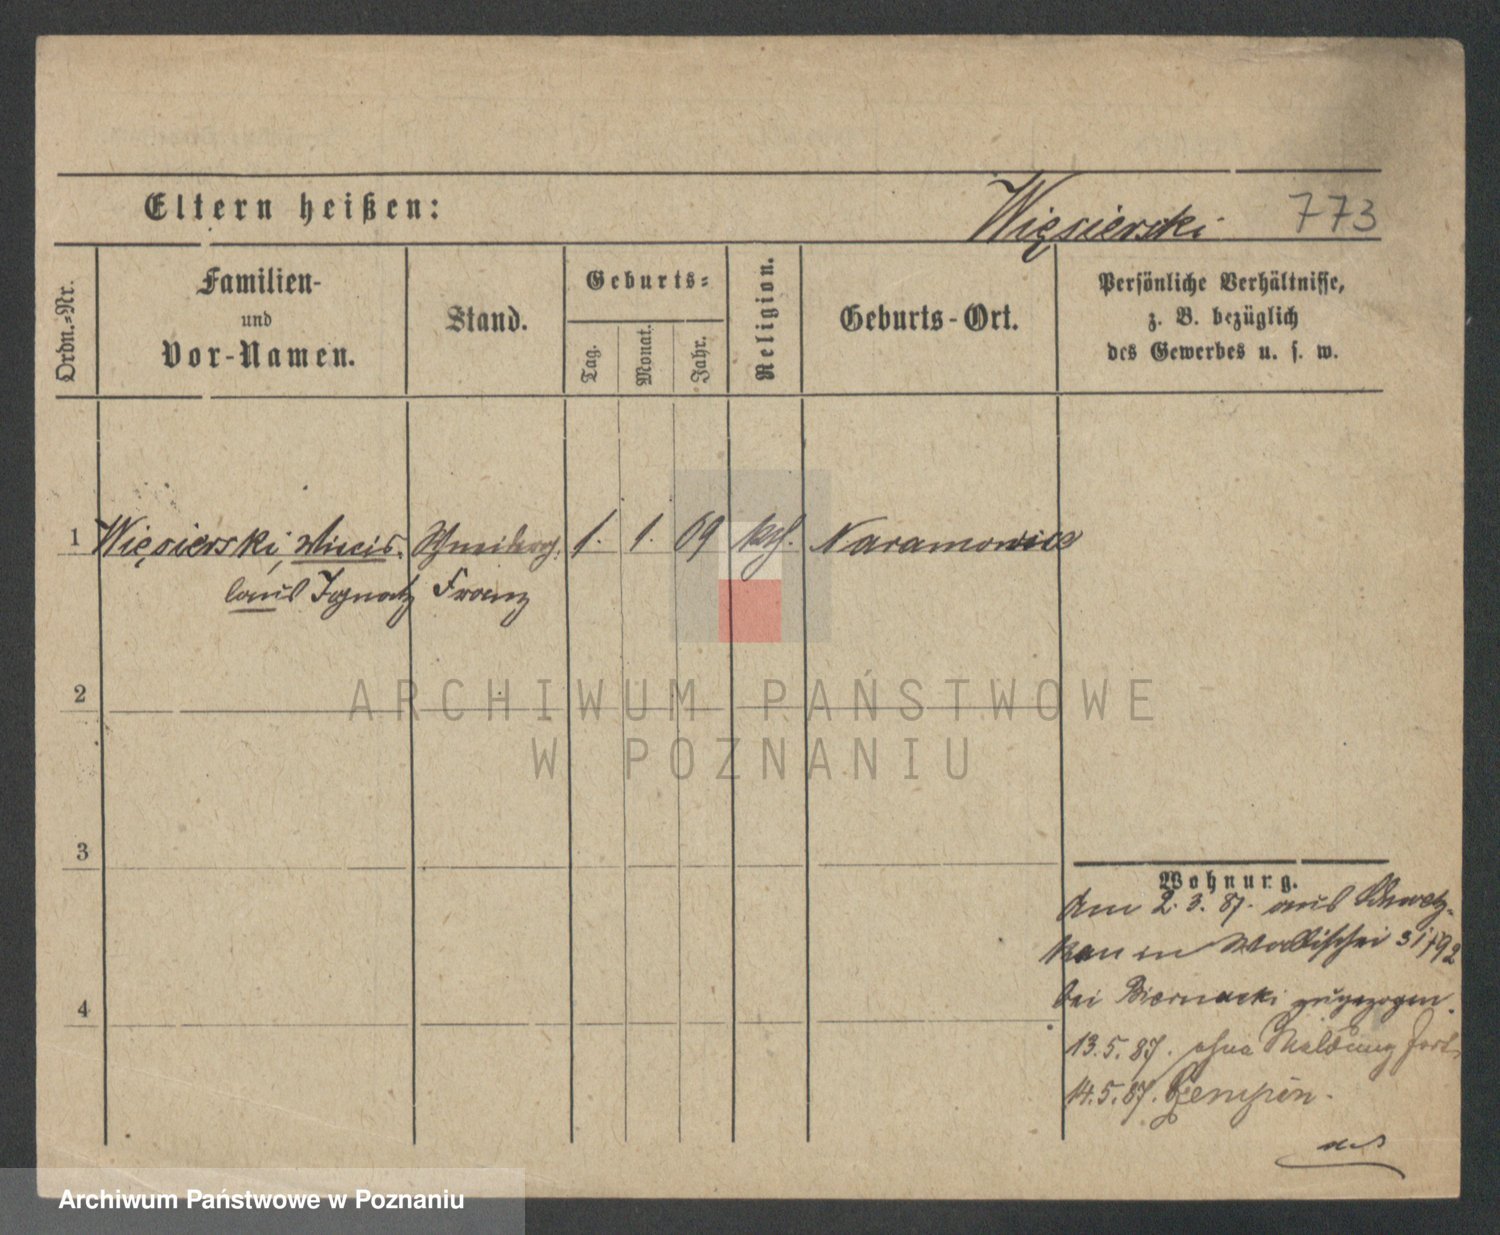 Eltern heißen:
Więsierski 773
Ordn.-Nr.
Familien-
und
Vor-Namen.
Stand.
Geburts-
Tag.
Monat.
Jahr.
Religion.
Geburts-Ort.
Persönliche Verhältnisse,
z. B. bezüglich
des Gewerbes u. s. w.
1 Więsierski, 1. 1. 69 kth. Naramowice
laus Ignatz Franz
2
3
4
Wohnung.
Am 2. 3. 87. aus
in Wallischei 31/92
bei Biernacki zugezogen.
13.5.87. ohne Meldung fort
14.5.87. Kempen.
ARCHIWUM PAŃSTWOWE
W POZNANIU
Archiwum Państwowe w Poznaniu